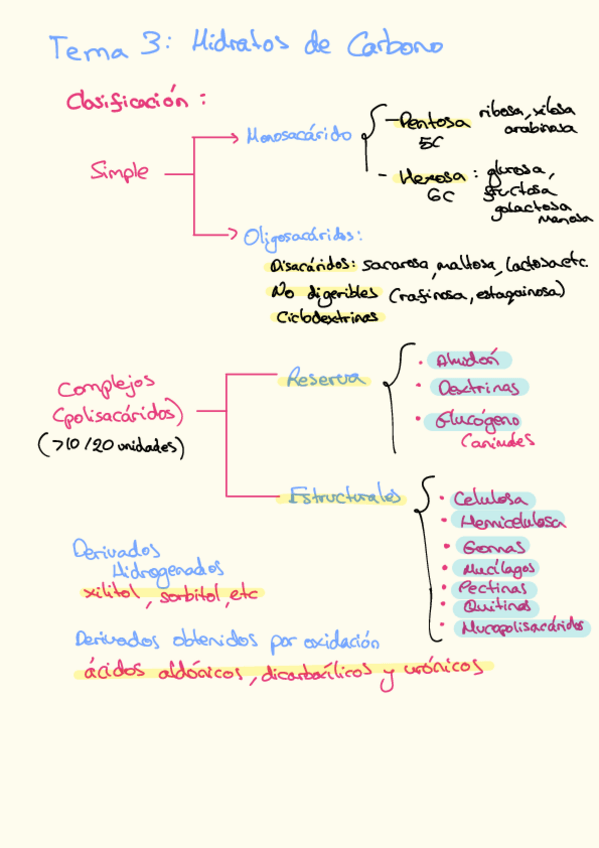 Tema 3: Hidratos de Carbono
Clasificación:
Simple
Monosacárido
- Pentosa
5C
ribosa, xilosa
arabinosa
- Hexosa: glucosa,
6C
fructosa
galactosa
manosa
Oligosacáridos:
Disacáridos: sacarosa, maltosa, lactosa etc.
No digeribles (rafinosa, estaquinosa)
Ciclodextrinas
Complejos
(polisacáridos)
(>10/20 unidades)
Reserva
• Almidón
• Dextrinas
• Glucógeno
(animales
Estructurales
• Celulosa
• Hemicelulosa
• Gomas
• Mucílagos
• Pectinas
• Quitinas
• Mucopolisacáridos
Derivados
Hidrogenados
xilitol, sorbitol, etc
Derivados obtenidos por oxidación
ácidos aldónicos, dicarboxílicos y urónicos